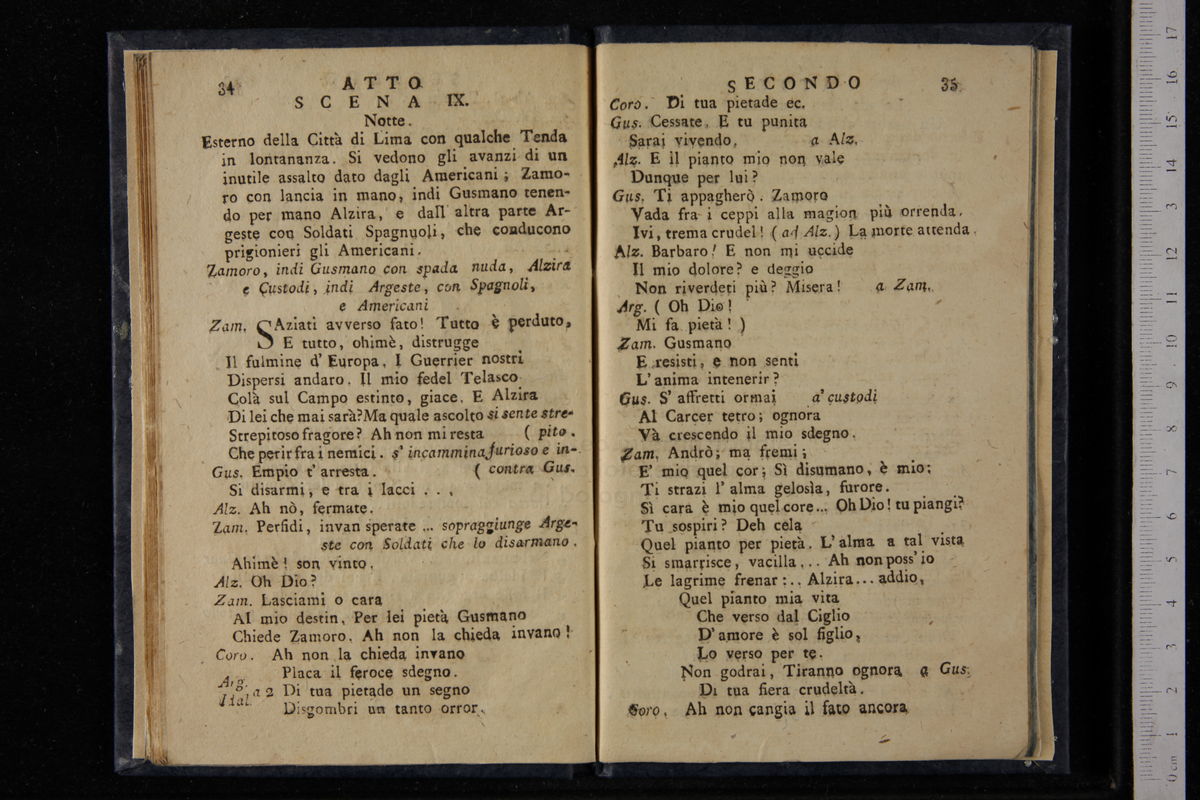 34 ATTO
SCENA IX.
Notte.
Esterno della Città di Lima con qualche Tenda
in lontananza. Si vedono gli avanzi di un
inutile assalto dato dagli Americani; Zamo-
ro con lancia in mano, indi Gusmano tenen-
do per mano Alzira, e dall' altra parte Ar-
geste con Soldati Spagnuoli, che conducono
prigionieri gli Americani.
Zamoro, indi Gusmano con spada nuda, Alzira
e Custodi, indi Argeste, con Spagnoli,
e Americani
Zam. SAziati avverso fato! Tutto è perduto,
E tutto, ohimè, distrugge
Il fulmine d' Europa. I Guerrier nostri
Dispersi andaro. Il mio fedel Telasco
Colà sul Campo estinto, giace. E Alzira
Di lei che mai sarà? Ma quale ascolto si sente stre-
Strepitoso fragore? Ah non mi resta ( pito.
Che perir fra i nemici. s' incammina furioso e in-
Gus. Empio t' arresta. ( contra Gus.
Si disarmi, e tra i lacci . . .
Alz. Ah nò, fermate.
Zam. Perfidi, invan sperate ... sopraggiunge Arge-
ste con Soldati che lo disarmano.
Ahimè! son vinto.
Alz. Oh Dio?
Zam. Lasciami o cara
Al mio destin. Per lei pietà Gusmano
Chiede Zamoro. Ah non la chieda invano!
Coro. Ah non la chieda invano
Placa il feroce sdegno.
Arg. a 2 Di tua pietade un segno
Disgombri un tanto orror.
SECONDO 35
Coro. Di tua pietade ec.
Gus. Cessate. E tu punita
Sarai vivendo. a Alz.
Alz. E il pianto mio non vale
Dunque per lui?
Gus. Ti appagherò. Zamoro
Vada fra i ceppi alla magion più orrenda.
Ivi, trema crudel! ( ad Alz. ) La morte attenda.
Alz. Barbaro! E non mi uccide
Il mio dolore? e deggio
Non riverderti più? Misera! a Zam.
Arg. ( Oh Dio!
Mi fa pietà! )
Zam. Gusmano
E resisti, e non senti
L' anima intenerir?
Gus. S' affretti ormai a' custodi
Al Carcer tetro; ognora
Và crescendo il mio sdegno.
Zam. Andrò; ma fremi;
E' mio quel cor; Sì disumano, è mio;
Ti strazi l' alma gelosìa, furore.
Sì cara è mio quel core... Oh Dio! tu piangi?
Tu sospiri? Deh cela
Quel pianto per pietà. L' alma a tal vista
Si smarrisce, vacilla... Ah non poss' io
Le lagrime frenar:.. Alzira... addio,
Quel pianto mia vita
Che verso dal Ciglio
D' amore è sol figlio,
Lo verso per te.
Non godrai, Tiranno ognora a Gus.
Di tua fiera crudeltà.
Coro. Ah non cangia il fato ancora
0 cm 1 2 3 4 5 6 7 8 9 10 11 12 13 14 15 16 17